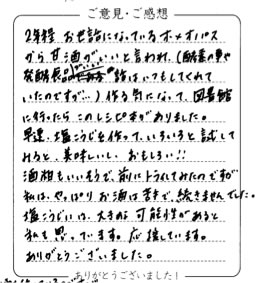 ご意見・ご感想
2年程 お世話になっているホメオパス
から甘酒がいいと言われ、(酵素の事や
発酵食品 話はいつもしてくれて
いたのですが…) 作る気になって、図書館
に行ったら このレシピ本がありました。
早速、塩こうじを作って、いろいろと試して
みると、美味しいし、おもしろい!!
酒粕もいいそうで、前にトライしてみたのですが
私は、やっぱり お酒は苦手で、続きませんでした。
塩こうじいは、大きな可能性があると
私も思っています。応援しています。
ありがとうございました。
ありがとうございました!